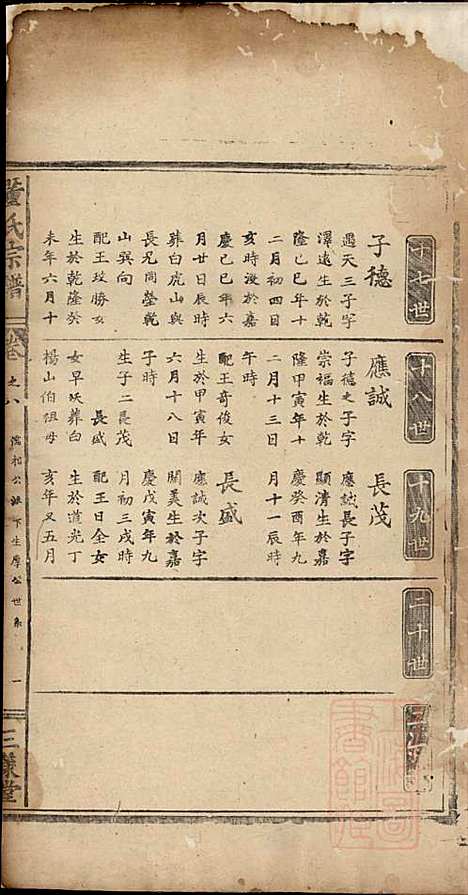 十七世
子德
遇天三子字
澤遠生於乾
隆己巳年十
二月初四日
亥時漫於嘉
慶己巳年六
月廿日辰時
葬白虎山與
長兄同塋乾
山巽向
配王玟勝女
生於乾隆癸
未年六月十
十八世
應誠
子德之子字
崇福生於乾
隆甲寅年十
二月十三日
午時
配王奇俊女
生於甲寅年
六月十八日
子時
生子二長茂
長盛
女早殀葬白
楊山伯祖母
十九世
長茂
應誠長子字
顯清生於嘉
慶癸酉年九
月十一辰時
長盛
應誠次子字
開美生於嘉
慶戊寅年九
月初三戌時
配王日全女
生於道光丁
亥年又五月
二十世
董氏宗譜
卷之八
公派下生厚公世系
一
三策堂